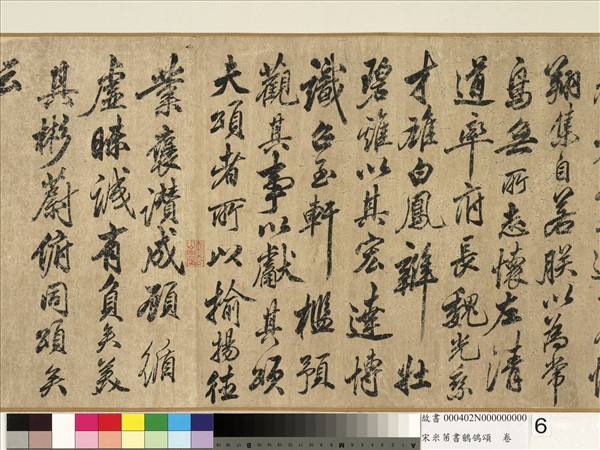 翔集自若朕以為常
鳥無所志懷左清
道率府長魏光乘
才雄白鳳辯壯
碧雞以其宏達博
識召至軒檻預
觀其事以獻其頌
夫頌者所以揄揚德
業褒讚成顧循
虛昧誠有負矣美
其彬蔚俯同頌矣
云
故書 000402N000000000
宋米芾書鶺鴒頌 卷
6